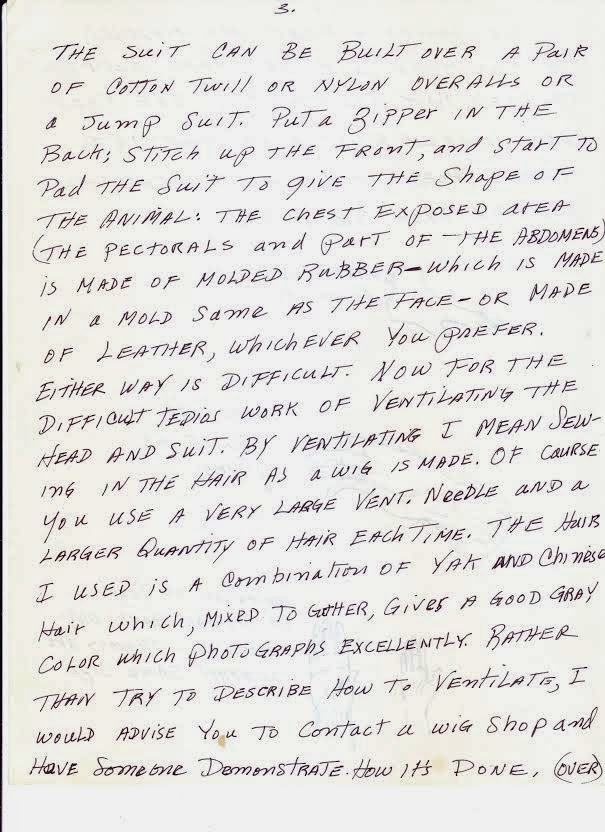 3.
THE SUIT CAN BE BUILT OVER A PAIR
OF COTTON TWILL OR NYLON OVERALLS OR
a JUMP SUIT. PUT a ZIPPER IN THE
Back; STITCH up THE FRONT, and START TO
Pad THE Suit TO give THE Shape OF
THE ANIMAL. THE CHEST EXPOSED AREA
(THE PECTORALS and PART OF THE ABDOMENS)
iS MADE OF MOLDED RUBBER—which is MADE
IN a MOLD Same AS THE FACE—OR MADE
OF LEATHER, whichever You PREFER.
EITHER WAY IS DIFFICULT. NOW FOR THE
DIFFICULT TEDIOS WORK OF VENTILATING THE
HEAD AND SUIT. BY VENTILATING I MEAN SEW-
ING IN THE HAIR AS a WIG IS MADE. OF COURSE
YOU USE A VERY LARGE VENT. NeeDLE AND a
LARGER QUANTITY OF HAIR EACH TIME. THE HAIR
I USED IS A Combination OF YAK AND Chinese
Hair which, MIXED TOGETHER, GIVES A GOOD GRAY
COLOR which PHOTOGRAPHS EXCELLENTLY. RATHER
THAN TRY TO DESCRIBE HOW TO VENTILATE, I
WOULD ADVISE YOU TO Contact a WIG Shop and
HAVE Someone DemonstRATE HOW IT'S DONE. (OVER)